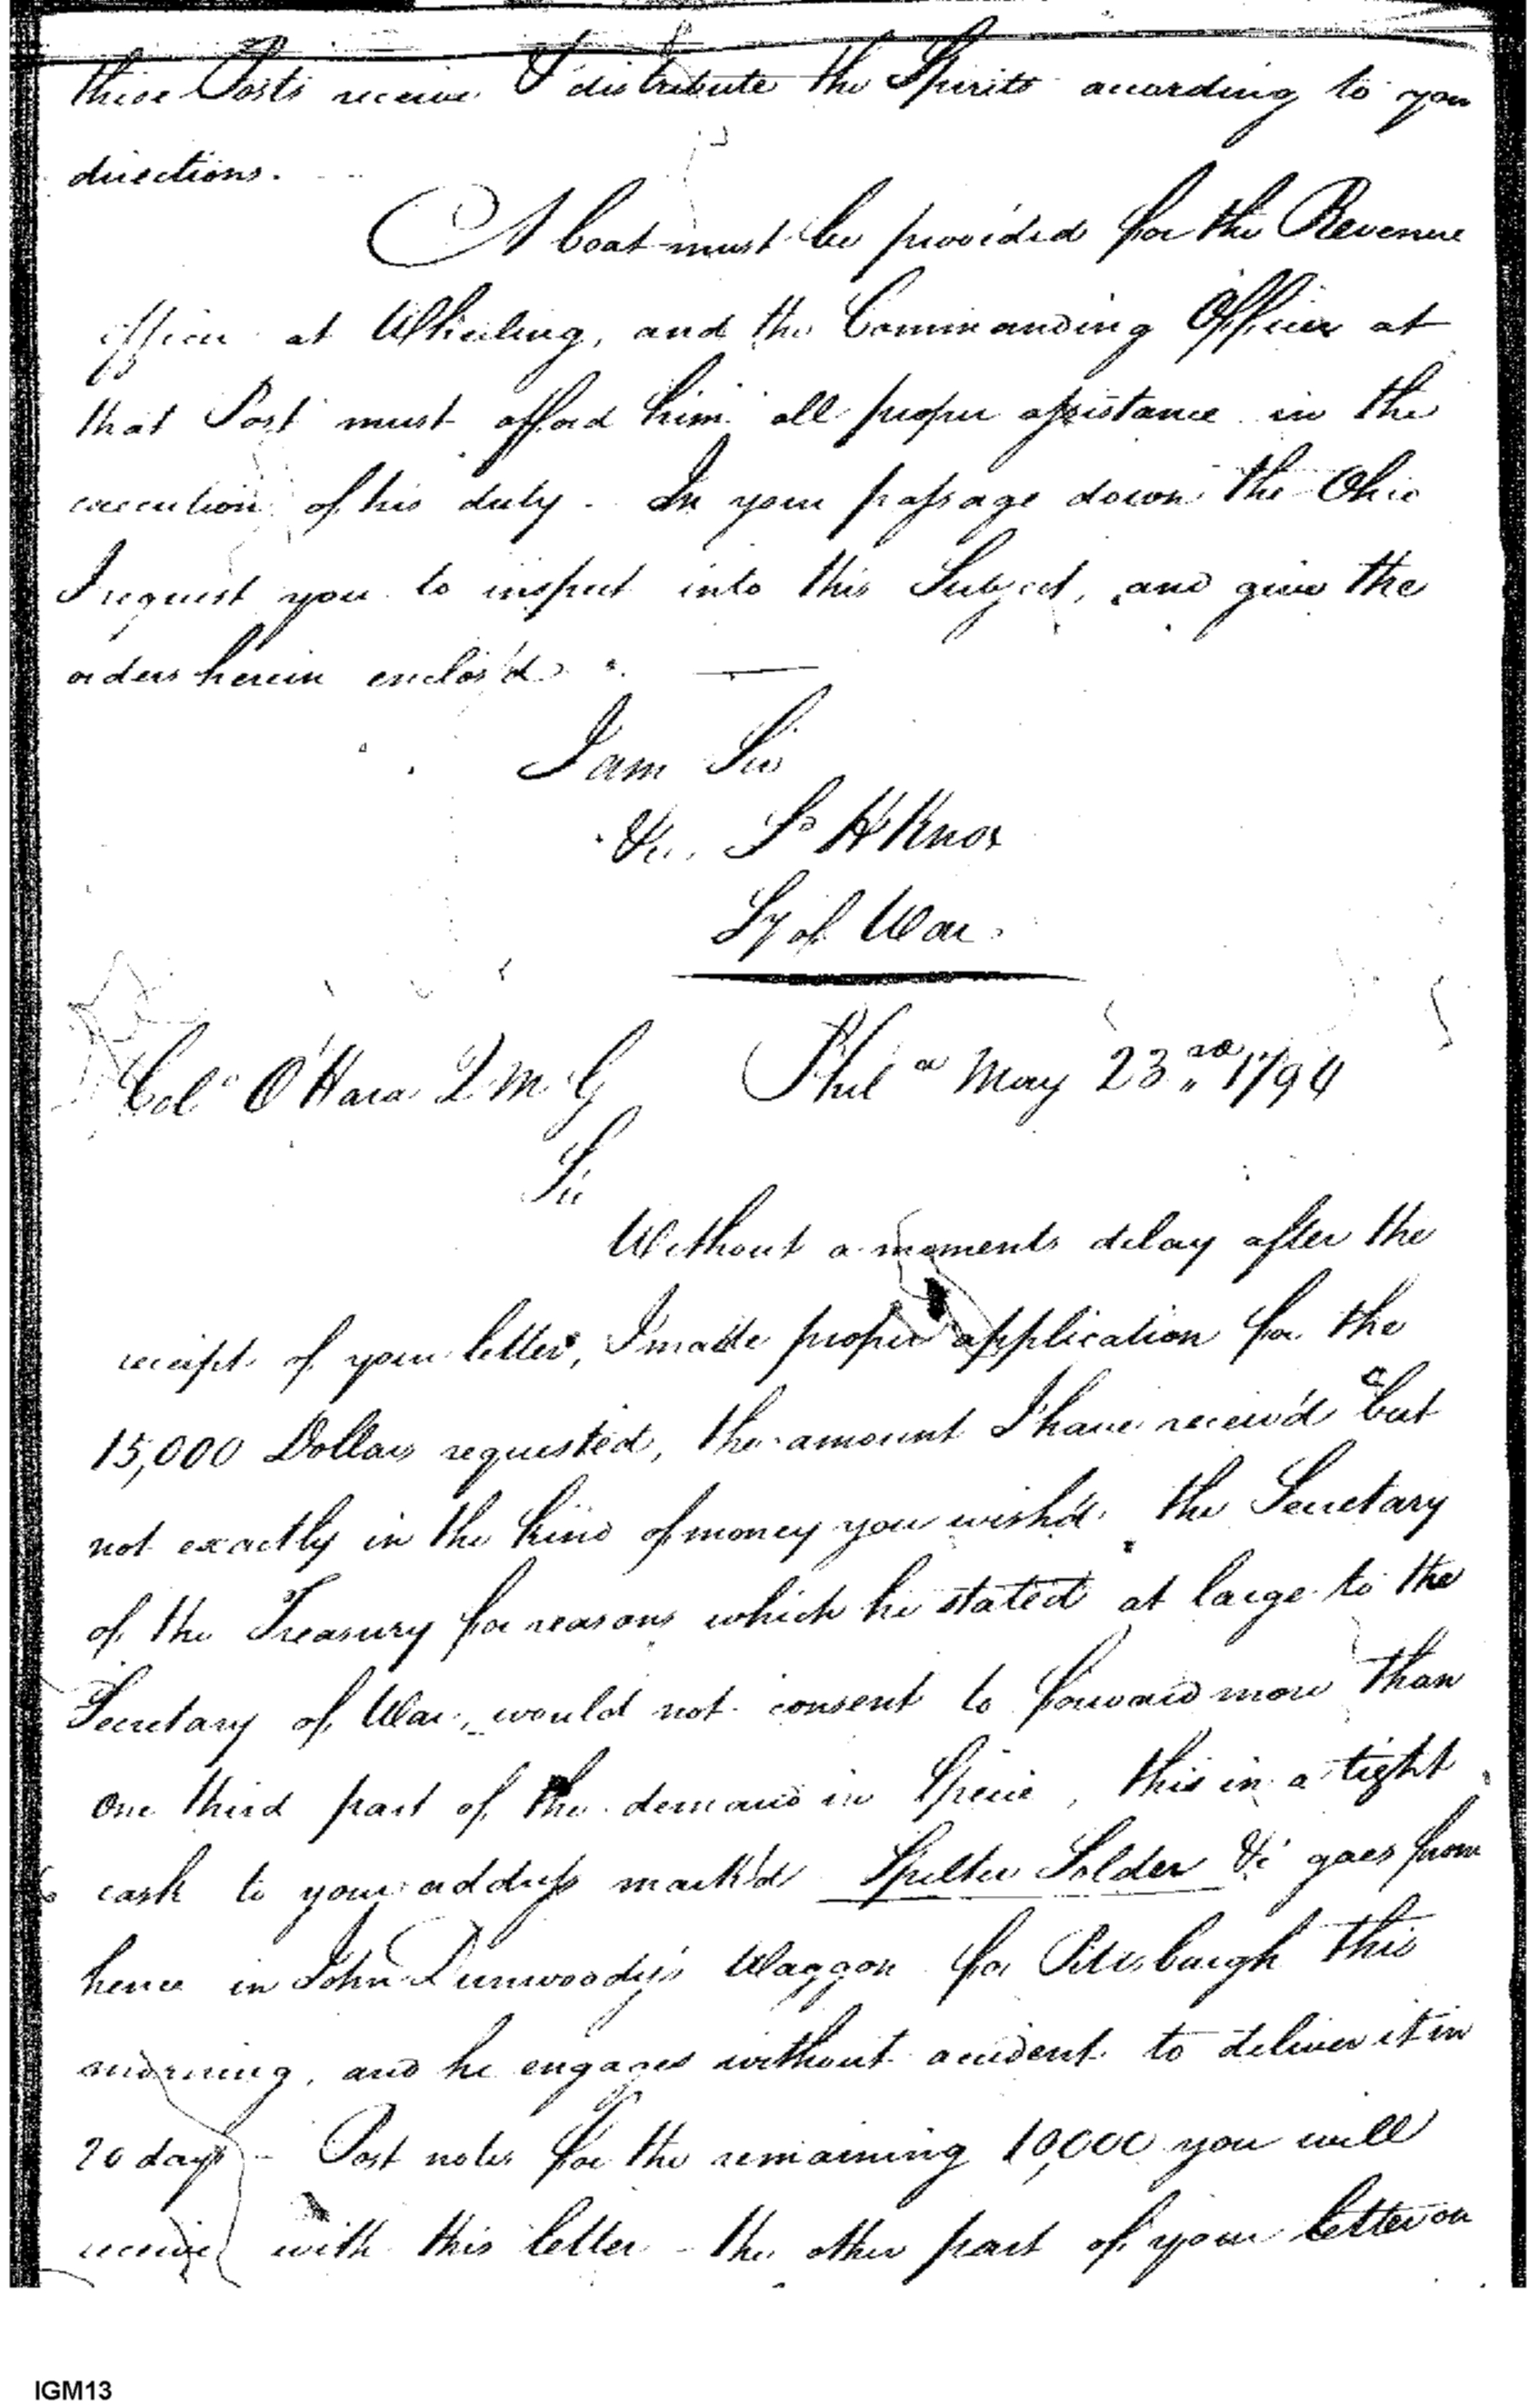 those Posts receive & distribute the Spirits according to your
directions.
A boat must be provided for the Revenue
officer at Wheeling, and the Commanding Officer at
that Post must afford him all proper assistance in the
execution of his duty. In your passage down the Ohio
I request you to inspect into this Subject, and give the
orders herein enclos'd. —
I am Sir
&c. Sd H Knox
Sy of War.
Colo O'Hara Q M G Phila May 23rd 1794
Sir
Without a moments delay after the
receipt of your letter, I made proper application for the
15,000 Dollars requested, the amount I have receiv'd but
not exactly in the kind of money you wish'd. the Secretary
of the Treasury for reasons which he stated at large to the
Secretary of War, would not consent to forward more than
one third part of the demand in Specie, this in a tight
cask to your address mark'd Spelter Solder &c goes from
hence in John Dunwoody's Waggon for Pittsburgh this
morning, and he engages without accident to deliver it in
20 days - Post notes for the remaining 10,000 you will
receive with this letter - the other part of your letter on
IGM13